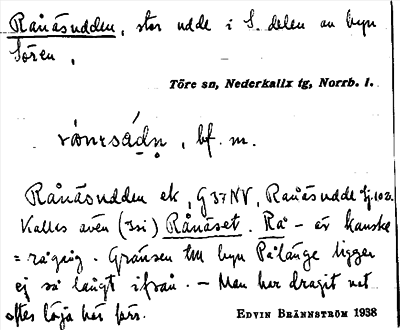 Rånäsudden, stor udde i S. delen av byn
Sören.
Töre sn, Nederkalix tg, Norrb. l.
bf. m.
Rånäsudden ek, G 37 NV, Rånäsudde
Kallas även (Isi) Rånäset. Rå- är kanske
= rågång. Gränsen till byn Pålänge ligger
ej så långt ifrån. - Man har dragit not
efter löja här förr.
EDVIN BRÄNNSTRÖM 1938